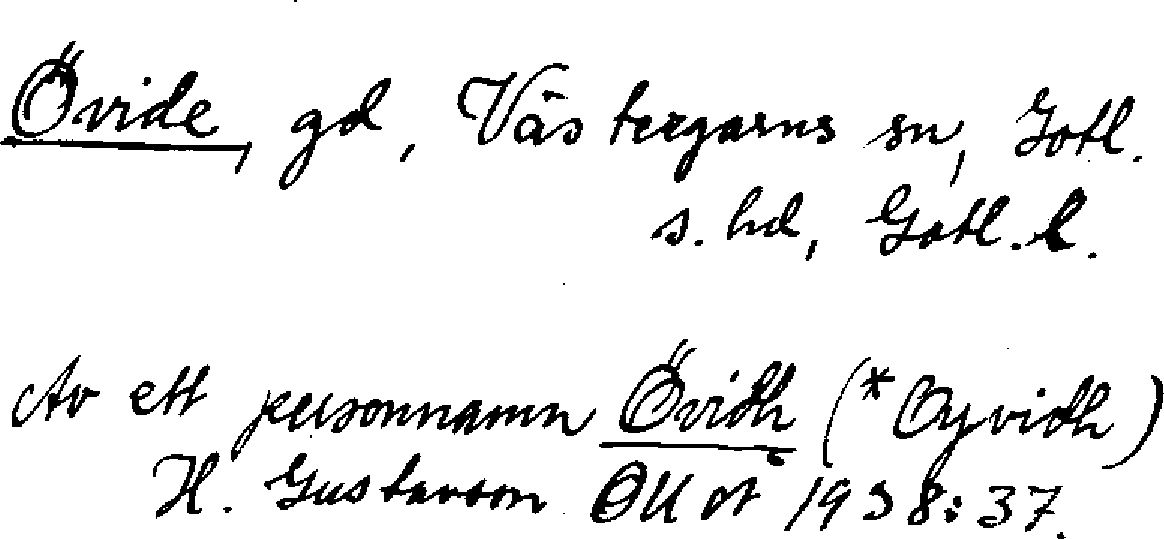 Övide, gd, Västergarns sn, Gotl.
s. hd, Gotl. l.
Av ett personnamn Övidh (*Oyvidh)
H. Gustavson 1938:37.